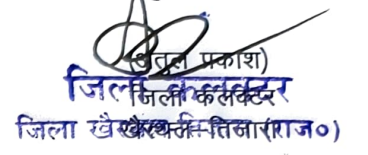 (अतुल प्रकाश)
जिला कलक्टर
जिला कलक्टर
जिला खैरथल-तिजारा(राज०)